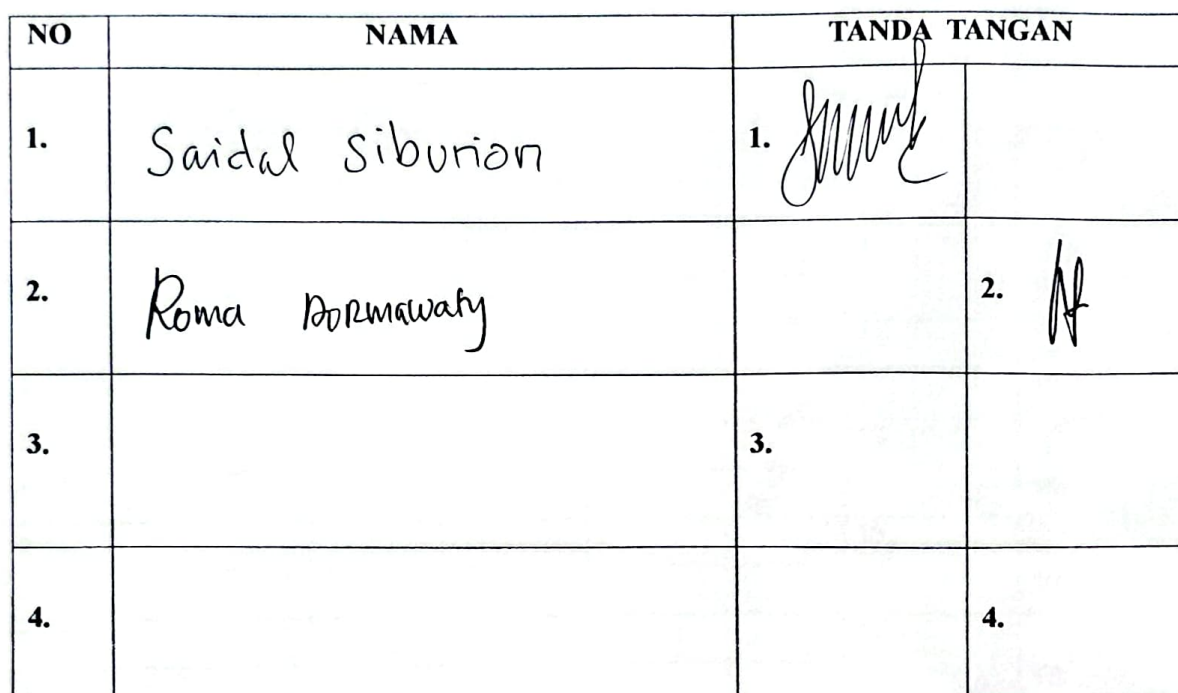 NO NAMA TANDA TANGAN
1. Saidal Siburian 1.
2. Roma Dormawaty 2.
3. 3.
4. 4.